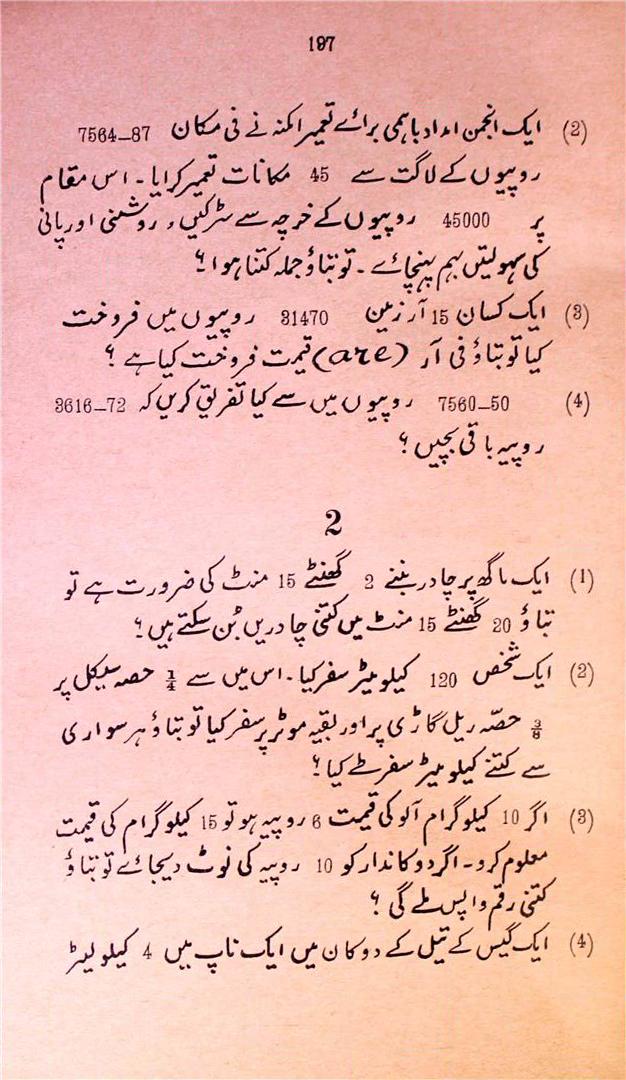 197
(2) ایک انجمن امداد باہمی برائے تعمیر امکنہ نے فی مکان 7564-87
روپیوں کے لاگت سے 45 مکانات تعمیر کرایا۔ اس مقام
پر 45000 روپیوں کے خرچہ سے سڑکیں، روشنی اور پانی
کی سہولتیں بہم پہنچائے۔ تو بتاؤ جملہ کتنا ہوا؟
(3) ایک کسان 15 آر زمین 31470 روپیوں میں فروخت
کیا تو بتاؤ فی آر (are) قیمت فروخت کیا ہے؟
(4) 7560-50 روپیوں میں سے کیا تفریق کریں کہ 3616-72
روپیہ باقی بچیں؟
2
(1) ایک ماگھ پر چادر بننے 2 گھنٹے 15 منٹ کی ضرورت ہے تو
بتاؤ 20 گھنٹے 15 منٹ میں کتنی چادریں بُن سکتے ہیں؟
(2) ایک شخص 120 کیلو میٹر سفر کیا۔ اس میں سے ¼ حصہ سیکل پر
⅜ حصّہ ریل گاڑی پر اور بقیہ موٹر پر سفر کیا تو بتاؤ ہر سواری
سے کتنے کیلو میٹر سفر طے کیا؟
(3) اگر 10 کیلو گرام آلو کی قیمت 6 روپیہ ہو تو 15 کیلو گرام کی قیمت
معلوم کرو۔ اگر دوکاندار کو 10 روپیہ کی نوٹ دیجائے تو بتاؤ
کتنی رقم واپس ملے گی؟
(4) ایک گیس کے تیل کے دوکان میں ایک ناپ میں 4 کیلو لیٹر